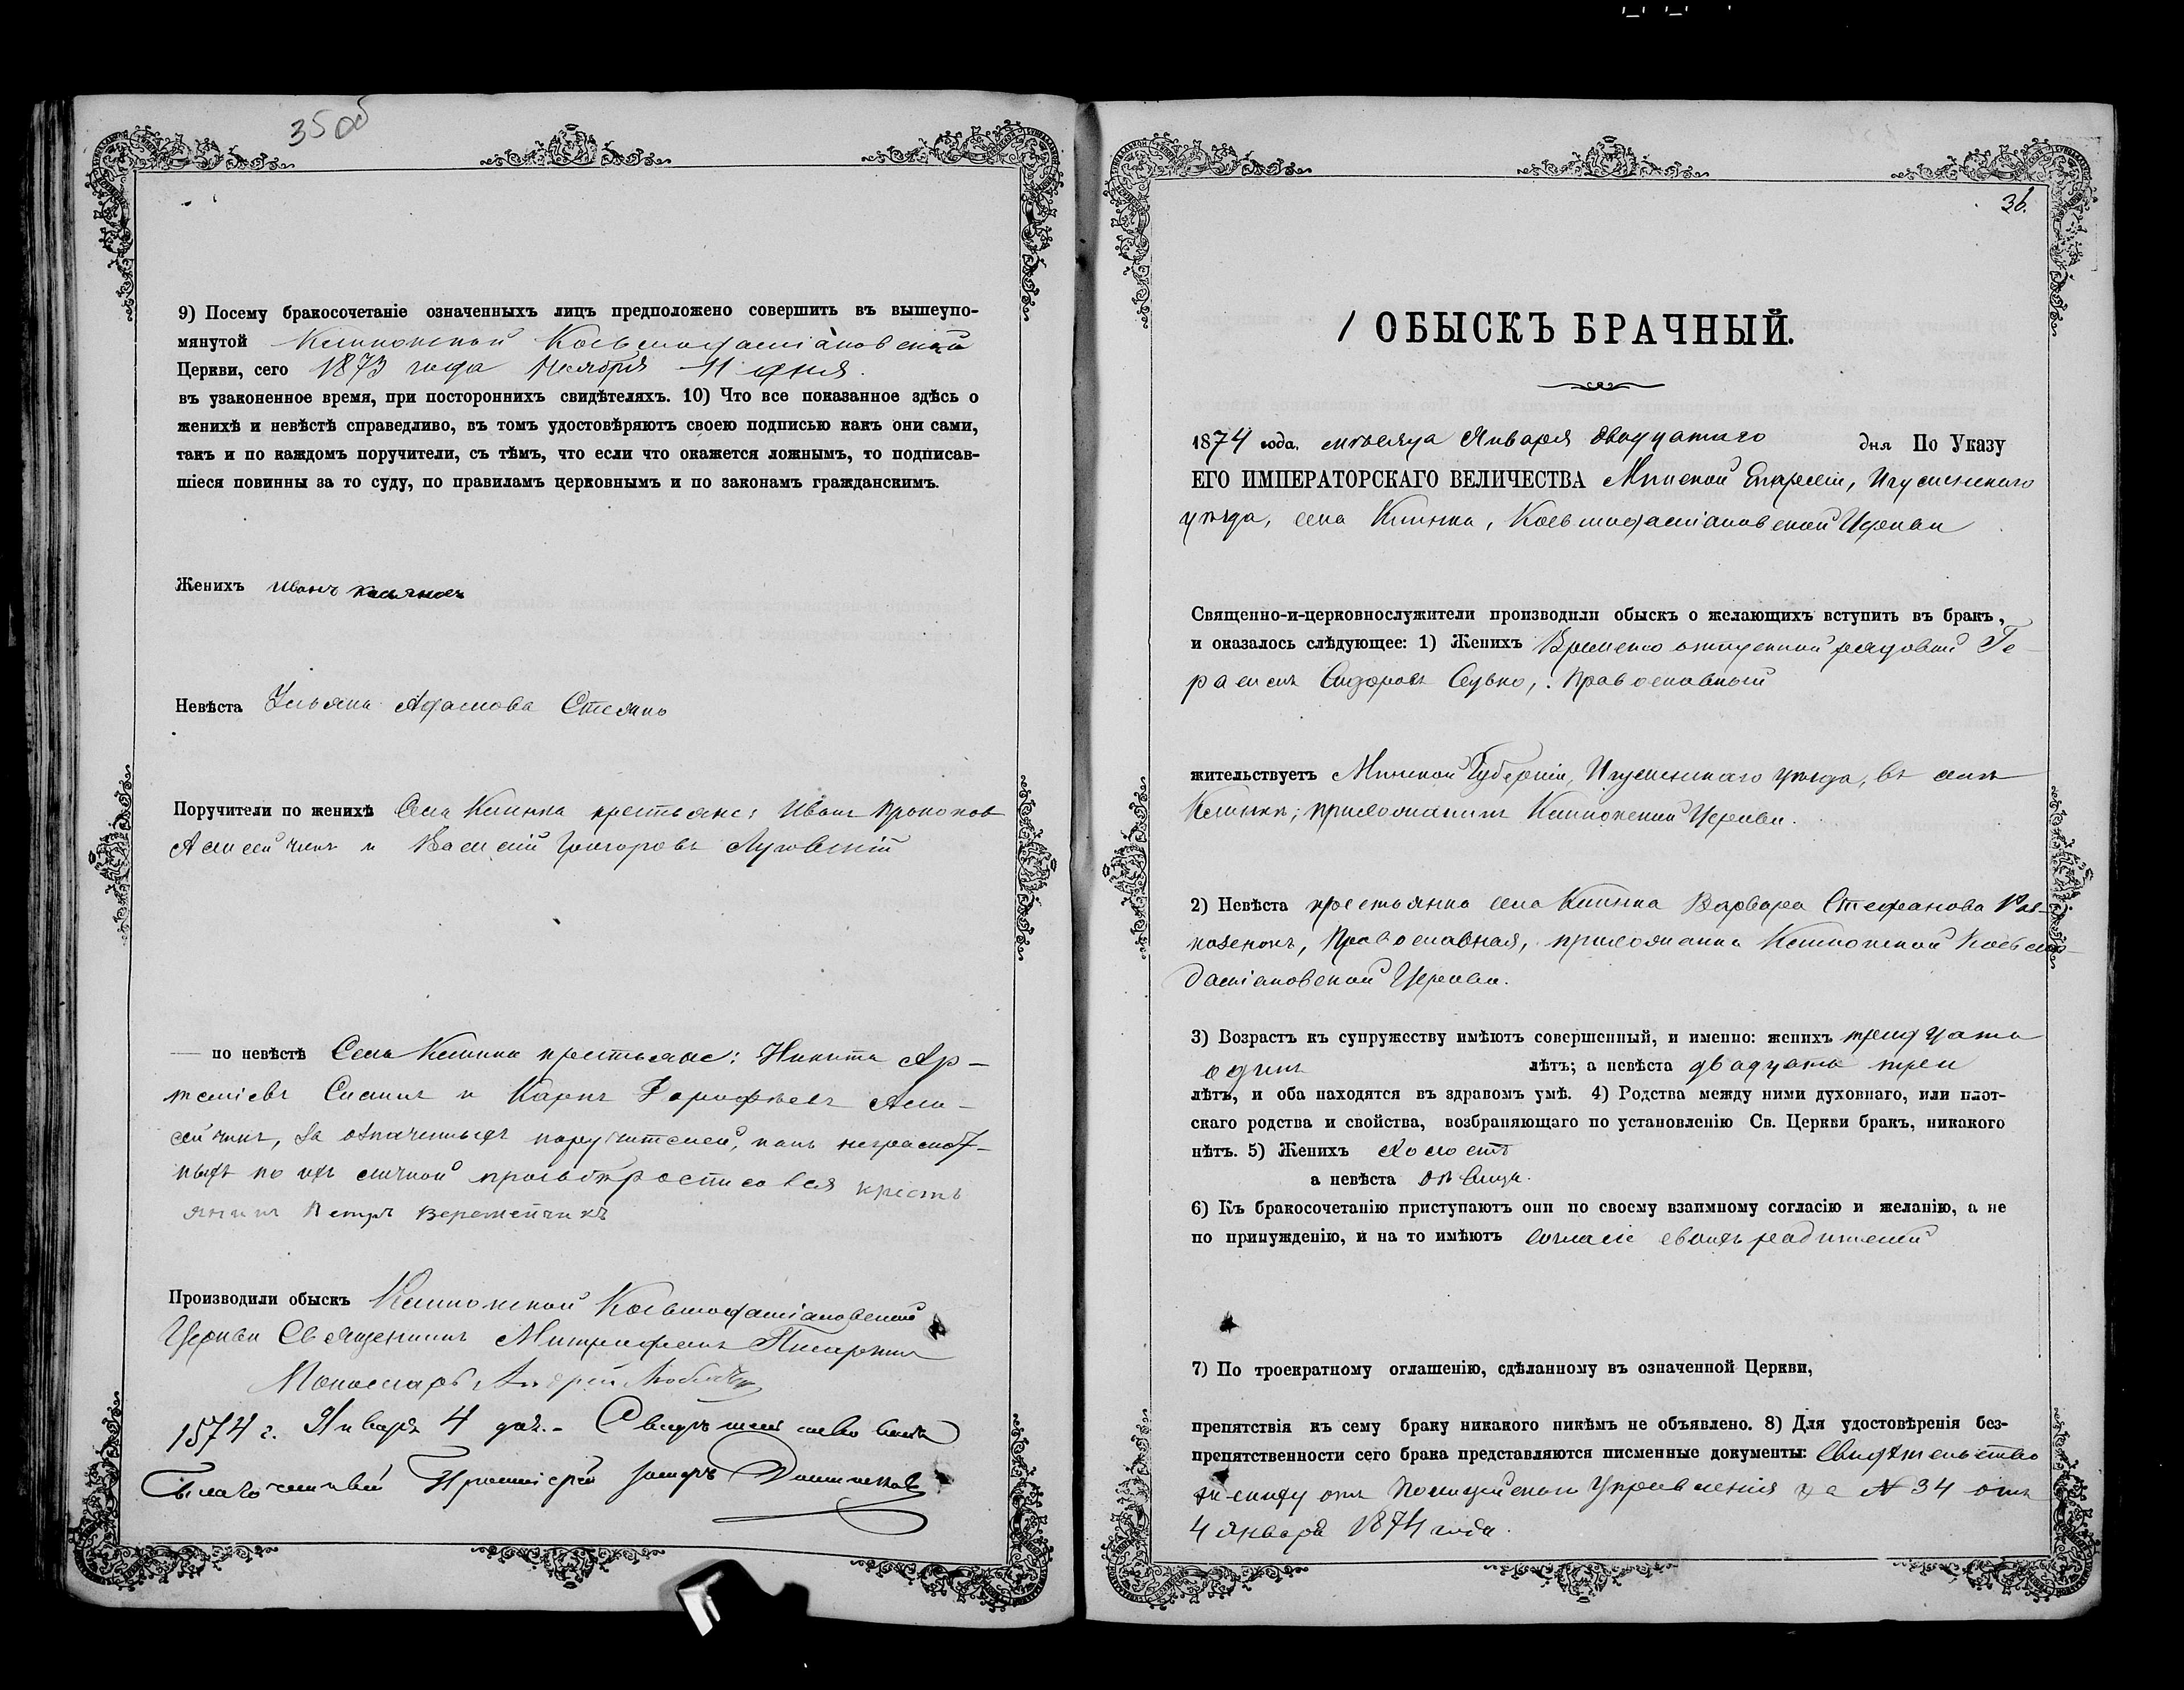 35об
9) Посему бракосочетаніе означенныхъ лицъ предположено совершить въ вышеупо-
мянутой Клинокской Косьмодаміановской
Церкви, сего 1873 года Ноября 11 дня.
въ узаконенное время, при постороннихъ свидѣтеляхъ. 10) Что все показанное здѣсь о
женихѣ и невѣстѣ справедливо, въ томъ удостовѣряютъ своею подписью какъ они сами,
такъ и по каждомъ поручители, съ тѣмъ, что если что окажется ложнымъ, то подписав-
шіеся повинны за то суду, по правиламъ церковнымъ и по законамъ гражданскимъ.
Женихъ Иванъ
Невѣста Ульяна Адамова
Поручители по женихѣ Села Клинка крестьяне: Иванъ Прокоповъ
Алисейчикъ и Василій Григоровъ Луговскій
— по невѣстѣ Села Клинка крестьяне: Никита Ар-
теміевъ и Карпъ Дорофѣевъ Али-
сейчикъ, За означенныхъ поручителей, какъ неграмот-
ныхъ по ихъ личной просьбѣ росписовся кресть
янинъ Петръ Веремейчикъ
Производили обыскъ Клинокской Косьмодаміановской
Церкви Священникъ Митрофанъ
Андрей
1874 г. Января 4 дня. - Свидѣтельствовалъ
Благочинный Протоіерей
36.
ОБЫСКЪ БРАЧНЫЙ.
1874 года, мѣсяца Января двадцатаго дня По Указу
ЕГО ИМПЕРАТОРСКАГО ВЕЛИЧЕСТВА Минской Епархіи, Игуменскаго
уѣзда, села Клинка, Косьмодаміановской Церкви
Священно-и-церковнослужители производили обыскъ о желающихъ вступить въ бракъ,
и оказалось слѣдующее: 1) Женихъ Временно отпускной рядовой Ге-
расимъ Сидоровъ Православный
жительствуетъ Минской Губерніи, Игуменскаго уѣзда, въ селѣ
Клинкѣ; прихожанинъ Клинокской Церкви.
2) Невѣста крестьянка села Клинка Варвара Стефанова
Православная, прихожанка Клинокской Косьмо-
даміановской Церкви.
3) Возрастъ къ супружеству имѣютъ совершенный, и именно: женихъ тридцать
одинъ лѣтъ; а невѣста двадцать три
лѣтъ, и оба находятся въ здравомъ умѣ. 4) Родства между ними духовнаго, или плот-
скаго родства и свойства, возбраняющаго по установленію Св. Церкви бракъ, никакого
нѣтъ. 5) Женихъ холостъ
а невѣста дѣвица.
6) Къ бракосочетанію приступаютъ они по своему взаимному согласію и желанію, а не
по принужденію, и на то имѣютъ согласіе своихъ родителей
7) По троекратному оглашенію, сдѣланному въ означенной Церкви,
препятствія къ сему браку никакого никѣмъ не объявлено. 8) Для удостовѣренія без-
препятственности сего брака представляются писменные документы: Свидѣтельство
жениху отъ Полицейскаго Управленія за № 34 отъ
4 января 1874 года.